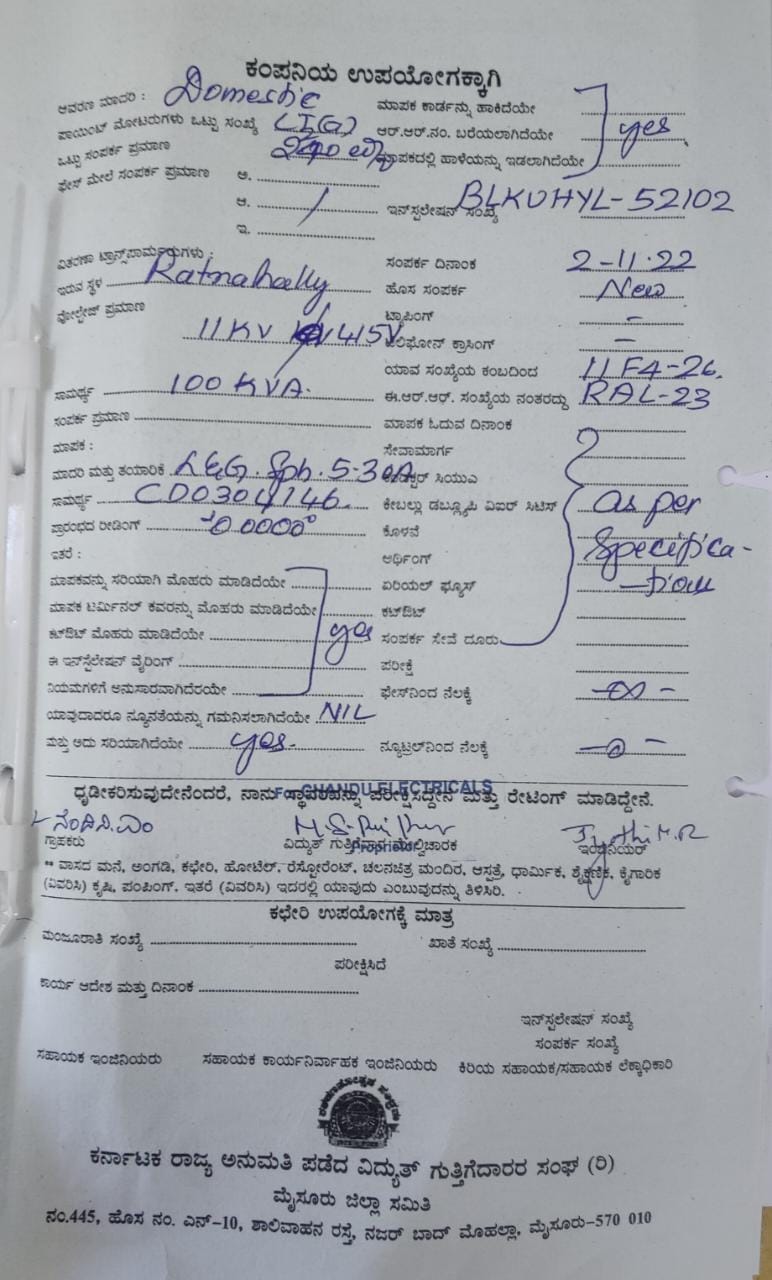 ಕಂಪನಿಯ ಉಪಯೋಗಕ್ಕಾಗಿ
ಆವರಣ ಮಾದರಿ : Domestic ಮಾಪಕ ಕಾರ್ಡನ್ನು ಹಾಕಿದೆಯೇ
ಪಾಯಿಂಟ್ ಮೋಟರುಗಳು ಒಟ್ಟು ಸಂಖ್ಯೆ ಆರ್.ಆರ್.ನಂ. ಬರೆಯಲಾಗಿದೆಯೇ yes
ಒಟ್ಟು ಸಂಪರ್ಕ ಪ್ರಮಾಣ ಮಾಪಕದಲ್ಲಿ ಹಾಳೆಯನ್ನು ಇಡಲಾಗಿದೆಯೇ
ಫೇಸ್ ಮೇಲೆ ಸಂಪರ್ಕ ಪ್ರಮಾಣ ಅ.
ಆ. ಇನ್‌ಸ್ಟಲೇಷನ್ ಸಂಖ್ಯೆ BLKUHYL-52102
ಇ.
ವಿತರಣಾ ಟ್ರಾನ್ಸ್‌ಪಾರ್ಮರುಗಳು : ಸಂಪರ್ಕ ದಿನಾಂಕ 2-11-22
ಇರುವ ಸ್ಥಳ Ratnahally ಹೊಸ ಸಂಪರ್ಕ New
ವೋಲ್ಟೇಜ್ ಪ್ರಮಾಣ ಟ್ಯಾಪಿಂಗ್ -
11KV 415V ಟೆಲಿಫೋನ್ ಕ್ರಾಸಿಂಗ್ -
ಯಾವ ಸಂಖ್ಯೆಯ ಕಂಬದಿಂದ 11F4-26.
ಸಾಮರ್ಥ್ಯ 100 KVA. ಈ.ಆರ್.ಆರ್. ಸಂಖ್ಯೆಯ ನಂತರದ್ದು RAL-23
ಸಂಪರ್ಕ ಪ್ರಮಾಣ ಮಾಪಕ ಓದುವ ದಿನಾಂಕ
ಮಾಪಕ : ಸೇವಾಮಾರ್ಗ
ಮಾದರಿ ಮತ್ತು ತಯಾರಿಕೆ L&G. Sph. 5-30A ಸಿಯುಎ
ಸಾಮರ್ಥ್ಯ CD0304146. ಕೇಬಲ್ಲು ಡಬ್ಲ್ಯೂಪಿ ವಿಐರ್ ಸಿಟಿಸ್ as per
ಪ್ರಾರಂಭದ ರೀಡಿಂಗ್ ಕೊಳವೆ Specifica-
ಇತರೆ : ಅರ್ಥಿಂಗ್ -tion
ಮಾಪಕವನ್ನು ಸರಿಯಾಗಿ ಮೊಹರು ಮಾಡಿದೆಯೇ ಏರಿಯಲ್ ಫ್ಯೂಸ್
ಮಾಪಕ ಟರ್ಮಿನಲ್ ಕವರನ್ನು ಮೊಹರು ಮಾಡಿದೆಯೇ ಕಟ್‌ಔಟ್
ಕಟ್‌ಔಟ್ ಮೊಹರು ಮಾಡಿದೆಯೇ yes ಸಂಪರ್ಕ ಸೇವೆ ದೂರು
ಈ ಇನ್‌ಸ್ಟೆಲೇಷನ್ ವೈರಿಂಗ್ ಪರೀಕ್ಷೆ
ನಿಯಮಗಳಿಗೆ ಅನುಸಾರವಾಗಿದೆರಯೇ ಫೇಸ್‌ನಿಂದ ನೆಲಕ್ಕೆ -∞-
ಯಾವುದಾದರೂ ನ್ಯೂನತೆಯನ್ನು ಗಮನಿಸಲಾಗಿದೆಯೇ NIL
ಮತ್ತು ಅದು ಸರಿಯಾಗಿದೆಯೇ yes- ನ್ಯೂಟ್ರಲ್‌ನಿಂದ ನೆಲಕ್ಕೆ -0-
For CHANDU ELECTRICALS
ಧೃಡೀಕರಿಸುವುದೇನೆಂದರೆ, ನಾನು ಸ್ಥಾವರವನ್ನು ಪರೀಕ್ಷಿಸಿದ್ದೇನೆ ಮತ್ತು ರೇಟಿಂಗ್ ಮಾಡಿದ್ದೇನೆ.
Jyothi M.R
ಗ್ರಾಹಕರು ವಿದ್ಯುತ್ ಗುತ್ತಿಗೆದಾರ ಮೇಲ್ವಿಚಾರಕ ಇಂಜಿನಿಯರ್
Proprietor
** ವಾಸದ ಮನೆ, ಅಂಗಡಿ, ಕಛೇರಿ, ಹೋಟೆಲ್, ರೆಸ್ಟೋರೆಂಟ್, ಚಲನಚಿತ್ರ ಮಂದಿರ, ಆಸ್ಪತ್ರೆ, ಧಾರ್ಮಿಕ, ಶೈಕ್ಷಣಿಕ, ಕೈಗಾರಿಕ
(ವಿವರಿಸಿ) ಕೃಷಿ, ಪಂಪಿಂಗ್. ಇತರೆ (ವಿವರಿಸಿ) ಇದರಲ್ಲಿ ಯಾವುದು ಎಂಬುವುದನ್ನು ತಿಳಿಸಿರಿ.
ಕಛೇರಿ ಉಪಯೋಗಕ್ಕೆ ಮಾತ್ರ
ಮಂಜೂರಾತಿ ಸಂಖ್ಯೆ ಖಾತೆ ಸಂಖ್ಯೆ
ಪರೀಕ್ಷಿಸಿದೆ
ಕಾರ್ಯ ಆದೇಶ ಮತ್ತು ದಿನಾಂಕ
ಇನ್‌ಸ್ಟಲೇಷನ್ ಸಂಖ್ಯೆ
ಸಂಪರ್ಕ ಸಂಖ್ಯೆ
ಸಹಾಯಕ ಇಂಜಿನಿಯರು ಸಹಾಯಕ ಕಾರ್ಯನಿರ್ವಾಹಕ ಇಂಜಿನಿಯರು ಕಿರಿಯ ಸಹಾಯಕ/ಸಹಾಯಕ ಲೆಕ್ಕಾಧಿಕಾರಿ
ಕರ್ನಾಟಕ ರಾಜ್ಯ ಅನುಮತಿ ಪಡೆದ ವಿದ್ಯುತ್ ಗುತ್ತಿಗೆದಾರರ ಸಂಘ (ರಿ)
ಮೈಸೂರು ಜಿಲ್ಲಾ ಸಮಿತಿ
ನಂ.445, ಹೊಸ ನಂ. ಎನ್-10, ಶಾಲಿವಾಹನ ರಸ್ತೆ, ನಜರ್ ಬಾದ್ ಮೊಹಲ್ಲಾ, ಮೈಸೂರು-570 010